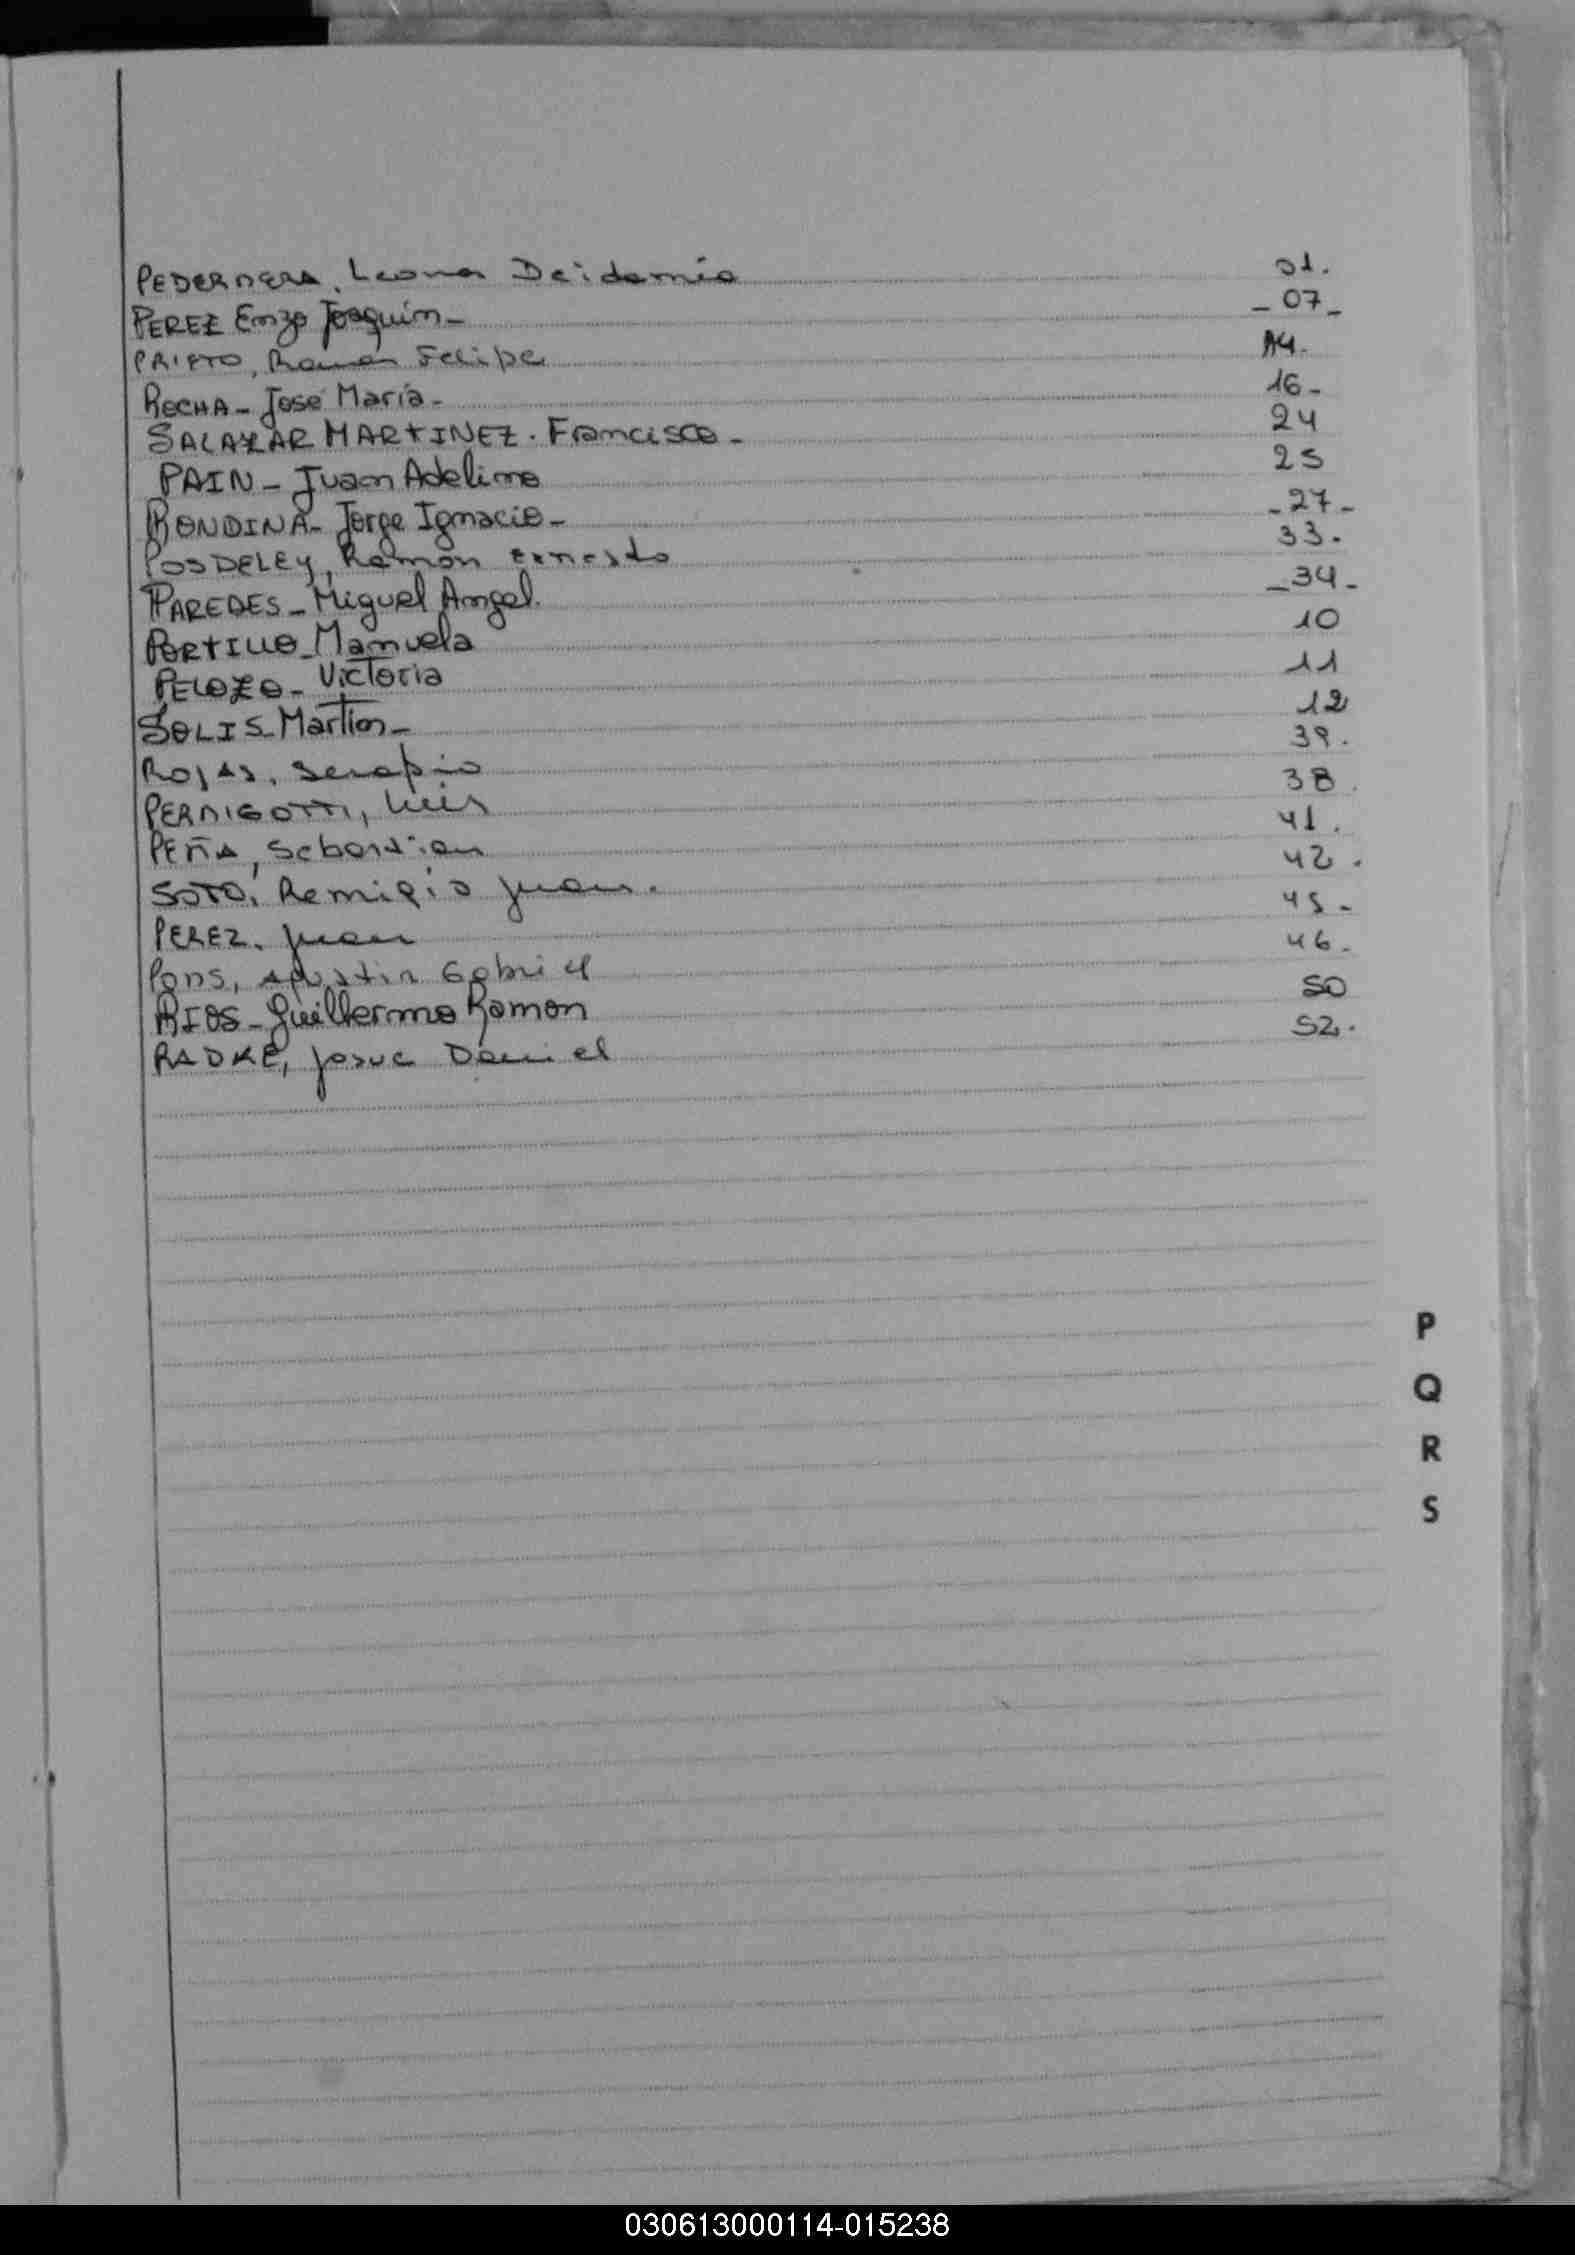 PEDERNERA, Leonor Deidamia 01.
PEREZ Enzo Joaquin_ _ 07 _
PRIETO, Ramon Felipe 14.
ROCHA_ José María_ 16_
SALAZAR MARTINEZ. Francisco_ 24
PAIN_ Juan Adelino 25
RONDINA_ Jorge Ignacio_ _27_
POSDELEY, Ramón Ernesto 33.
PAREDES_ Miguel Angel. _34_
PORTILLO_Manuela 10
PELOZO_ Victoria 11
SOLIS_Martin_ 12
ROJAS, Serapio 39.
PERNIGOTTI, Luis 38.
PEÑA, Sebastian 41.
SOTO, Remigio Juan. 42.
PEREZ, Juan 45_
Pons, Agustin Gabriel 46.
RIOS_Guillermo Ramon 50
RADKE, Josue Daniel 52.
P
Q
R
S
030613000114-015238